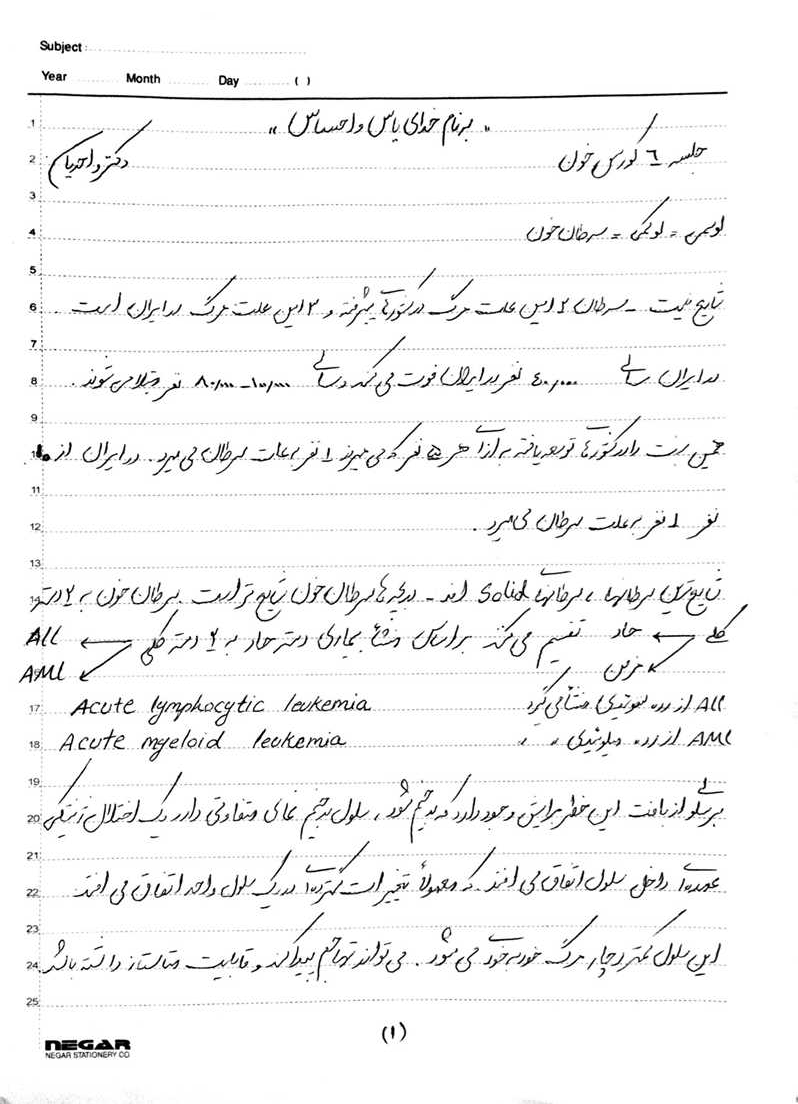 Subject:
Year Month Day ( )
1 "به نام خدای یاس و احساس"
2 جلسه ٦ کورس خون دکتر واحدیان
3
4 لوسمی = لوکمی = سرطان خون
5
6 شایع نیست - سرطان ۲ امین علت مرگ در کشورهای پیشرفته و ۳ امین علت مرگ در ایران است.
7
8 در ایران سالی ۴۰،۰۰۰ نفر در ایران فوت می کند و سالی ۱۰۰،۰۰۰-۸۰،۰۰۰ نفر مبتلا می شوند.
9
10 همین نسبت دارد کشورهای توسعه یافته به ازای هر ۵ نفر که می میرند ۱ نفر به علت سرطان می میرد. در ایران از ۱۰
11
12 نفر ۱ نفر به علت سرطان می میرد.
13
14 شایع ترین سرطانها، سرطانهای Solid اند - در بچه ها سرطان خون شایع تر است. سرطان خون به ۲ دسته
کلی حاد تقسیم می کند بر اساس منشأ بیماری دسته حاد به ۲ دسته کلی ALL
مزمن AML
17 ALL از رده لنفوئیدی منشأ می گیرد Acute lymphocytic leukemia
18 AML از رده میلوئیدی " " Acute myeloid leukemia
19
20 هر سلولی از بافت این خطر برایش وجود دارد که بدخیم شود، سلول بدخیم نمای متفاوتی دارد یک اختلال ژنتیکی
21
22 عمدتاً داخل سلول اتفاق می افتد که معمولاً تغییرات گسترده ای در یک سلول واحد اتفاق می افتد
23
24 این سلول کمتر دچار مرگ خود به خودی می شود. می تواند تهاجم پیدا کند و قابلیت متاستاز داشته باشد.
25
(۱)
NEGAR
NEGAR STATIONERY CO